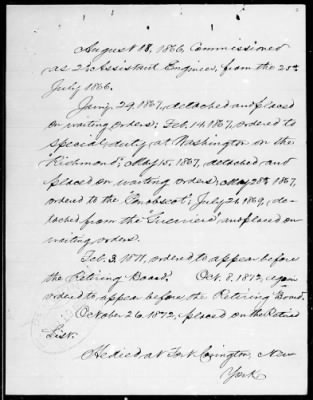 August 18, 1866, Commissioned
as 2d Assistant Engineer, from the 25th
July 1866.
Jany. 29. 1867, detached and placed
on waiting orders; Feb. 14. 1867, ordered to
special duty at Washington on the
"Richmond"; May 15. 1867, detached and
placed on waiting orders; May 28th 1867,
ordered to the "Penobscot"; July 26 1869, de-
tached from the "Guerriere" and placed on
waiting orders.
Feb. 3. 1871, ordered to appear before
the Retiring Board. Oct. 8. 1872, again
ordered to appear before the Retiring Board.
October 26. 1872, placed on the Retired
List.
He died at Fort Covington, New
York.